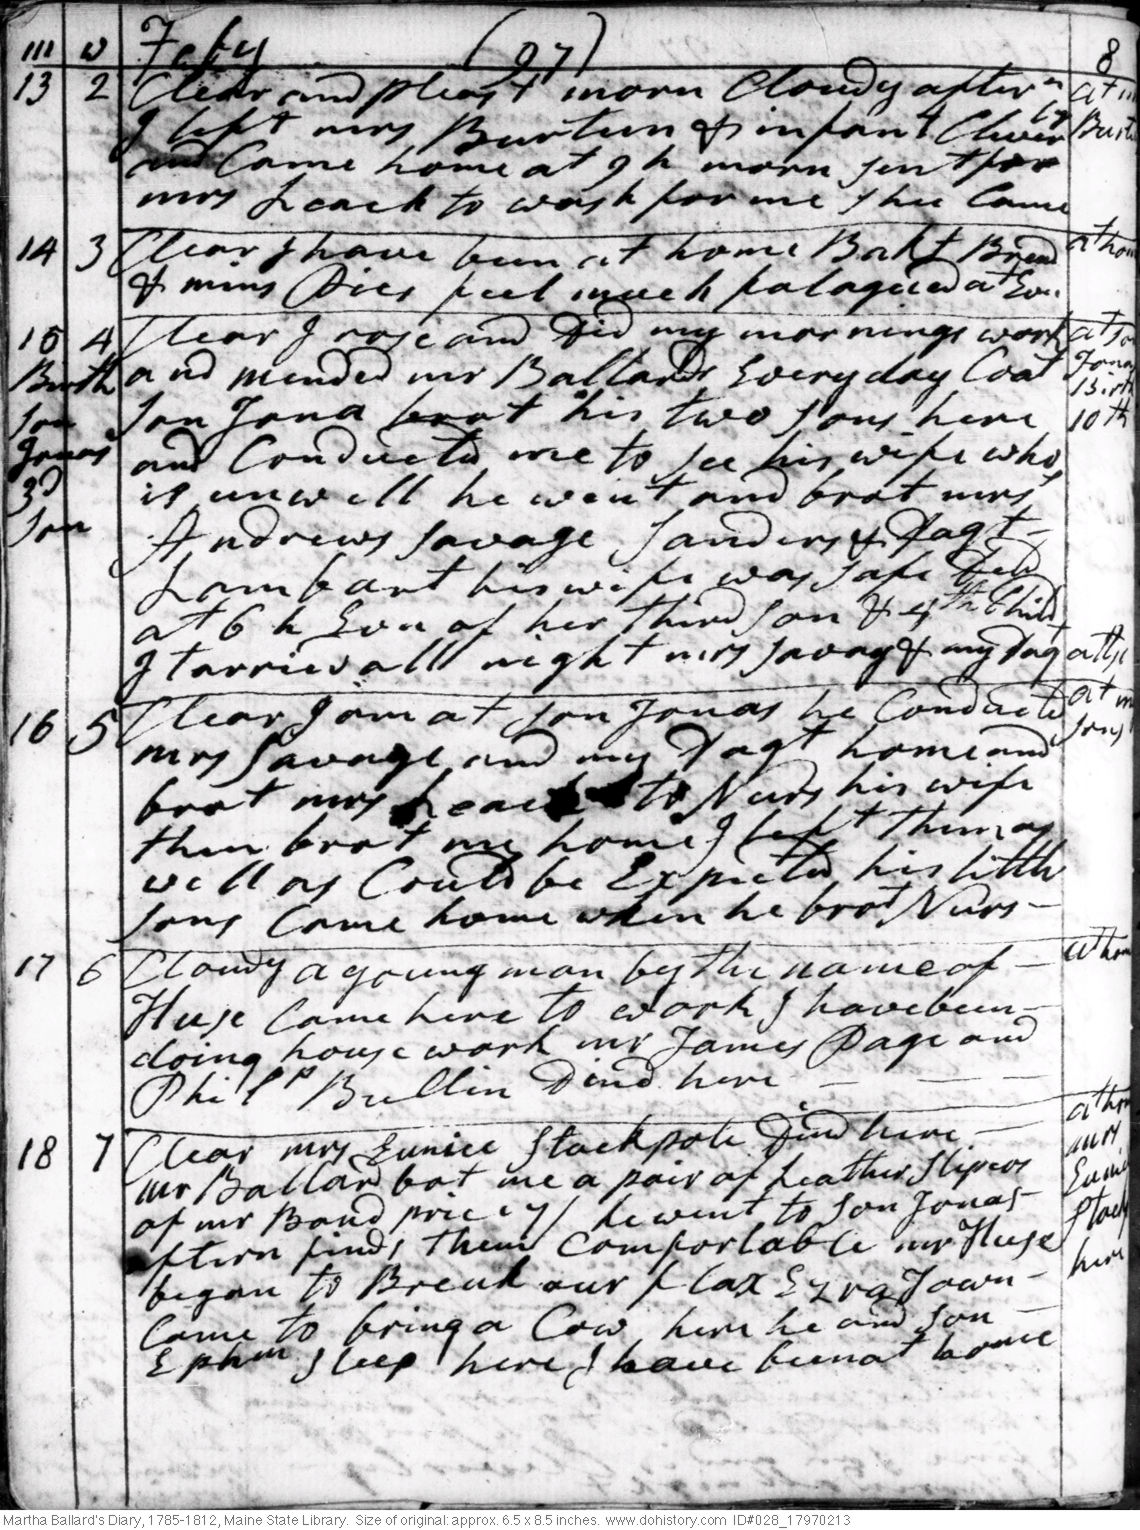 m w Feby (97) 8
13 2 Clear and pleast morn Cloudy aftern at
I left mrs Burtun & infant Clever
and Came home at 9 h morn sent for
mrs Leach to wash for me shee Came
14 3 Clear I have been at home Bakt Bread at hom
& mins Pies feel much fatagued at Evn
15 4 Clear I rose and Did my mornings work at so
Birth and mended mr Ballards Everyday Coat Jonas
son Son Jona brot his two sons here Birth
Jonas and Conducted me to see his wife who 10th
3d is unwell he went and brot mrs
son Andrews Savage Sanders & Dagt
Lambart his wife was safe Deld
at 6 h Evn of her third son & 4th Child
I tarried all night mrs Savag & my Dag
16 5 Clear I am at son Jonas he Conducted at m
mrs Savage and my Dagt home and sons
brot mrs Leach to Nurs his wife
then brot me home I left them as
well as Could be Expected his little
sons Came home when he brot Nurs
17 6 Cloudy a young man by the name of at hom
Huse Came here to work I have been
doing house work mr James Page and
Philp Bullin Dind here
18 7 Clear mrs Eunice Stackpole Dind here at hom
mr Ballard bot me a pair of Leather Slipers mrs
of mr Bond price 7/ he went to son Jonas Eunic
aftern finds them Comfortable mr Huse Stack
began to Break our flax Ezra Town here
Came to bring a Cow here he and son
Ephm sleep here I have been at home
Martha Ballard's Diary, 1785-1812, Maine State Library. Size of original: approx. 6.5 x 8.5 inches. www.dohistory.com ID#028_17970213